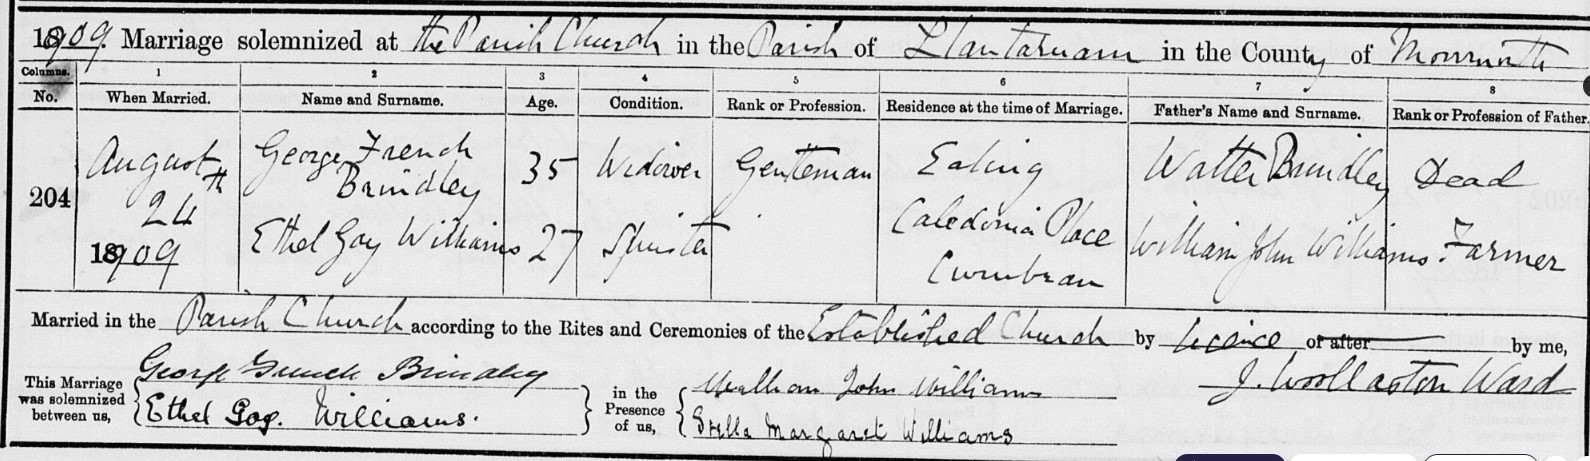 1909. Marriage solemnized at the Parish Church in the Parish of Llantarnam in the County of Monmouth
Columns. 1 2 3 4 5 6 7 8
No. When Married. Name and Surname. Age. Condition. Rank or Profession. Residence at the time of Marriage. Father's Name and Surname. Rank or Profession of Father.
204
August 24th 1909
George French Brindley 35 Widower Gentleman Ealing Walter Brindley Dead
Ethel Gay Williams 27 Spinster Caledonia Place Cwmbran William John Williams Farmer
Married in the Parish Church according to the Rites and Ceremonies of the Established Church by licence or after by me,
George French Brindley William John Williams J. Woollaston Ward
This Marriage was solemnized between us, in the Presence of us,
Ethel Gay Williams. Stella Margaret Williams